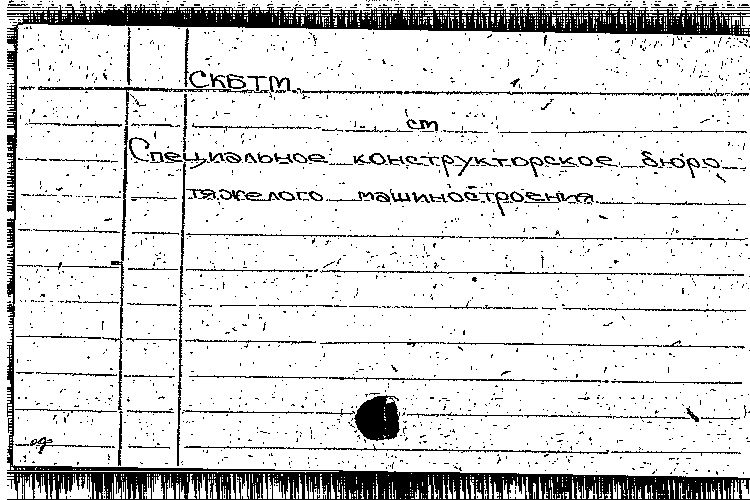 СКБТМ
ст
Специальное конструкторское бюро
тяжелого машиностроения